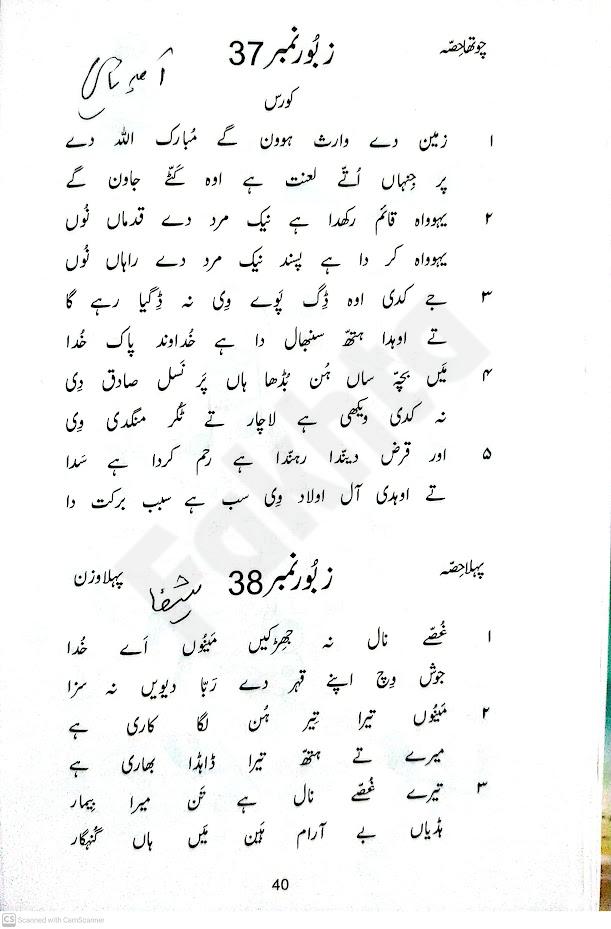 چوتھا حِصّہ
زبُور نمبر 37
کورس
۱ زمین دے وارث ہوون گے مُبارک اللہ دے
پر جِنہاں اُتّے لعنت ہے اوہ کَٹّے جاون گے
۲ یہوواہ قائم رکھدا ہے نیک مرد دے قدماں نُوں
یہوواہ کر دا ہے پسند نیک مرد دے راہاں نُوں
۳ جے کدی اوہ ڈِگ پَوے وِی نہ ڈِگیا رہے گا
تے اوہدا ہتھّ سنبھال دا ہے خُداوند پاک خُدا
۴ مَیں بچّہ ساں ہُن بُڈھا ہاں پَر نَسل صادق دِی
نہ کدی ویکھی ہے لاچار تے ٹُکر منگدی وِی
۵ اور قرض دیندا رہندا ہے رحم کردا ہے سَدا
تے اوہدی آل اولاد وِی سب ہے سبب برکت دا
پہلا حِصّہ
زبُور نمبر 38
پہلا وزن
۱ غُصّے نال نہ جھِڑکیں مَینُوں اَے خُدا
جوش وِچ اپنے قہر دے رَبّا دیویں نہ سزا
۲ مَینُوں تیرا تِیر ہُن لگا کاری ہے
میرے تے ہتھّ تیرا ڈاہڈا بھاری ہے
۳ تیرے غُصّے نال ہے تَن میرا بِیمار
ہڈیاں بے آرام ہَین مَیں ہاں گُنہگار
40
Fakhta
CS Scanned with CamScanner